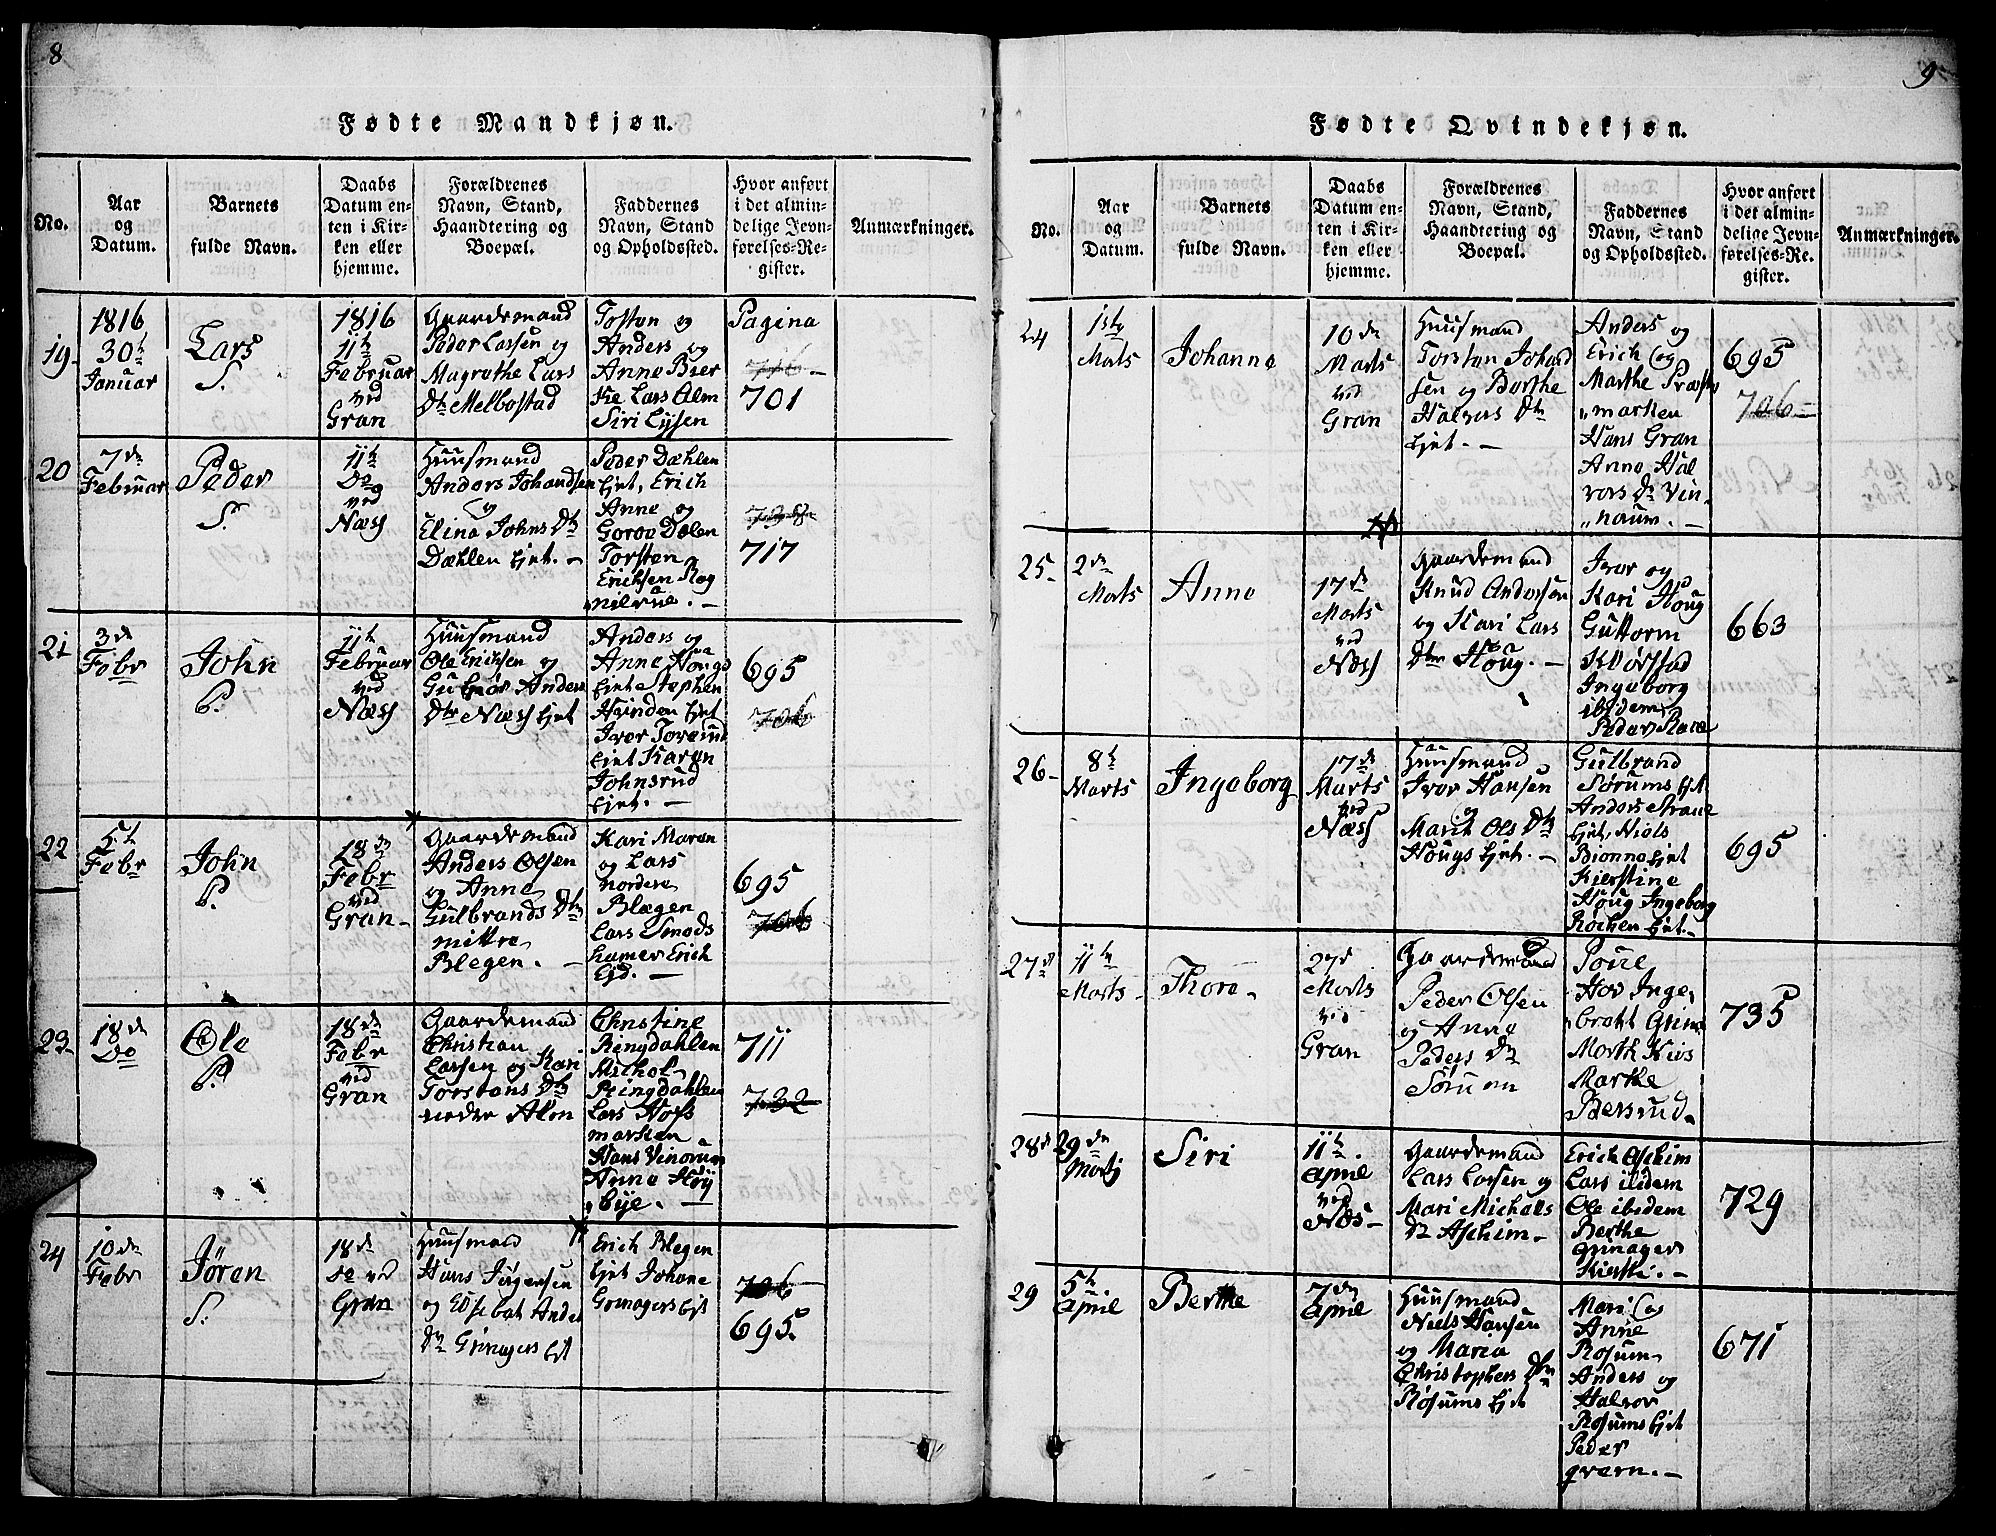 8
Fødte Mandkjøn.
No.
Aar
og
Datum.
Barnets
fulde Navn.
Daabs
Datum en-
ten i Kir-
ken eller
hjemme.
Forældrenes
Navn, Stand,
Haandtering og
Boepæl.
Faddernes
Navn, Stand
og Opholdssted.
Hvor anført
i det almin-
delige Jevn-
førelses-Re-
gister.
Anmærkninger.
19
1816
30t
Januar
Lars
S.
1816
11t
Februar
ved
Gran
Gaardemand
Peder Larsen og
Magrethe Lars
Dtr Melbostad
Tosten og
Anders og
Anne Bier
ke Lars Alm
Siri Lysen
Pagina
716
701
20
7de
Februar
Peder
S.
11t
Do
ved
Næss
Huusmand
Anders Johandsen
og
Elina Johns Dtr
Dæhlen Ejet.
Peder Dæhlen
Ejet, Erich
Anne og
Goroe Dælen
Torsten
Erichsen Rog
nilrue.
738
717
21
3de
Febr
John
P.
11t
Februar
ved
Næss
Huusmand
Ole Erichsen og
Anders
Dtr Næss Ejet
Anders og
Anne Hougs
Ejet Stephen
Hvinden Ejet
Iver
Ejet Karen
Johnsrud
Ejet.
695
706
22
5t
Febr
John
P.
18de
Febr
ved
Gran
Gaardemand
Anders Olsen
og Anne
Gulbrands Dtr
mittre
Blegen.
Kari Maren
og Lars
nordere
Blegen
Lars Smeds
hamer Erich
Ejd.
695
706
23
18de
Do
Ole
P.
18de
Febr
ved
Gran
Gaardemand
Christian
Larsen og Kari
Torstens Dtr
nedre Alm
Christine
Ringdahlen
Michel
Ringdahlen
Lars Hofs
marken
Hans Vinorum
Anne Høy
bye.
711
732
24
10de
Febr
Jøren
S.
18de
Do ved
Gran
Huusmand
Hans Jørgensen
og Elsebat Anders
Dtr Grinagers Ejt
Erich Blegen
Ejet Johane
Grinagers Ejt
706
695.
9
Fødte Qvindekjøn.
No.
Aar
og
Datum.
Barnets
fulde Navn.
Daabs
Datum en-
ten i Kir-
ken eller
hjemme.
Forældrenes
Navn, Stand,
Haandtering og
Boepæl.
Faddernes
Navn, Stand
og Opholdssted.
Hvor anført
i det almin-
delige Jevn-
førelses-Re-
gister.
Anmærkninger.
24
1ste
Marts
Johanne
10de
Marts
ved
Gran
Huusmand
Torsten Johand
sen og Berthe
Halvors Dtr
Ejet.
Anders og
Erich og
Marthe Præste
marken
Hans Gran
Anne Hal
vors Dtr Vin
naum.
695
706
25
2de
Marts
Anne
17de
Marts
ved
Næss
Gaardemand
Knud Andersen
og Kari Lars
Dtr Houg.
Iver og
Kari Houg
Guttorm
Kvørstad
Ingeborg
ibidem
Peder
663
26
8t
Marts
Ingeborg
17de
Marts
ved
Næss
Huusmand
Iver Hansen
og
Marit Ols Dtr
Hougs Ejet.
Gulbrand
Sørums Ejt
Anders
Ejet, Niels
Bionne Ejet
Kierstine
Houg Ingeborg
Røcken Ejet.
695
27
11te
Marts
Thore
27d
Marts
ved
Gran
Gaardemand
Peder Olsen
og Anne
Peders Dtr
Sørum
Poue
Hov Inge
brett Grina
Morth Kivs
Marthe
Bersrud
735
28
29de
Marts
Siri
11t
April
ved
Næs
Gaardemand
Lars Larsen og
Mari Michels
Dtr Aschim
Erich Aschim
Lars ibidem
Ole ibedem
Berthe
Grinager
Kiersti.
729
29
5te
April
Berthe
7de
April
Huusmand
Niels Hansen
og Maria
Christophers Dtr
Røsums Ejet
Mari og
Anne
Rosum
Anders og
Halvor
Røsums Ejet
Peder
qværn.
671